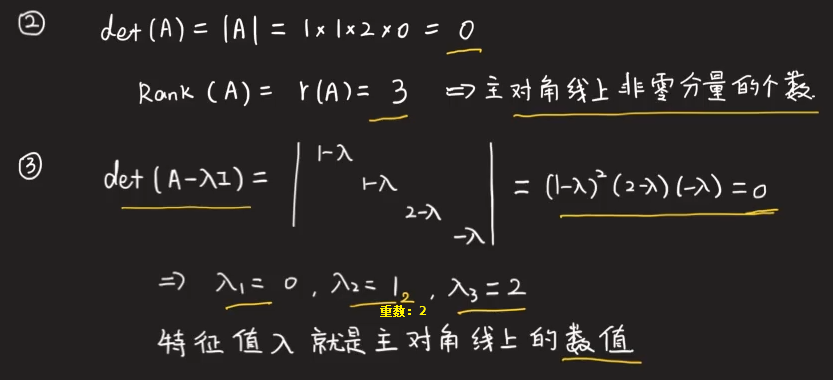 ② det(A) = |A| = 1×1×2×0 = 0
Rank(A) = r(A) = 3 => 主对角线上非零分量的个数.
③ det(A-λI) = | 1-λ 1-λ 2-λ -λ | = (1-λ)²(2-λ)(-λ) = 0
=> λ₁ = 0, λ₂ = 1₂, λ₃ = 2
重数: 2
特征值λ就是主对角线上的数值